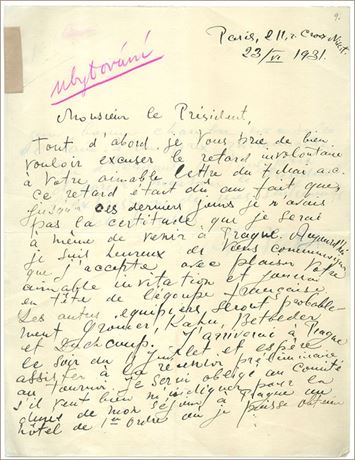 9.
Paris, 211, r. Croix Nivert.
23/VI 1931.
ubytování
Monsieur le Président,
Tout d'abord je Vous prie de bien
vouloir excuser le retard involontaire
à Votre aimable lettre du 7 mai a.c.
ce retard était dû au fait que,
jusqu'à ces derniers jours je n'avais
pas la certitude que je serai
à même de venir à Prague. Aujourd'hui
je suis heureux de Vous communiquer
que j'accepte avec plaisir Votre
aimable invitation et jouerai
en tête de l'équipe française.
Les autres équipiers seront probable-
ment Gromer, Kahn, Betbeder
et Duchamp. J'arriverai à Prague
le soir du Juillet et espère
assister à la réunion préliminaire
au Tournoi. Je serai obligé au Comité
s'il veut bien m'indiquer pour la
durée de mon séjour à Prague un
hôtel de 1er Ordre où je puisse obtenir